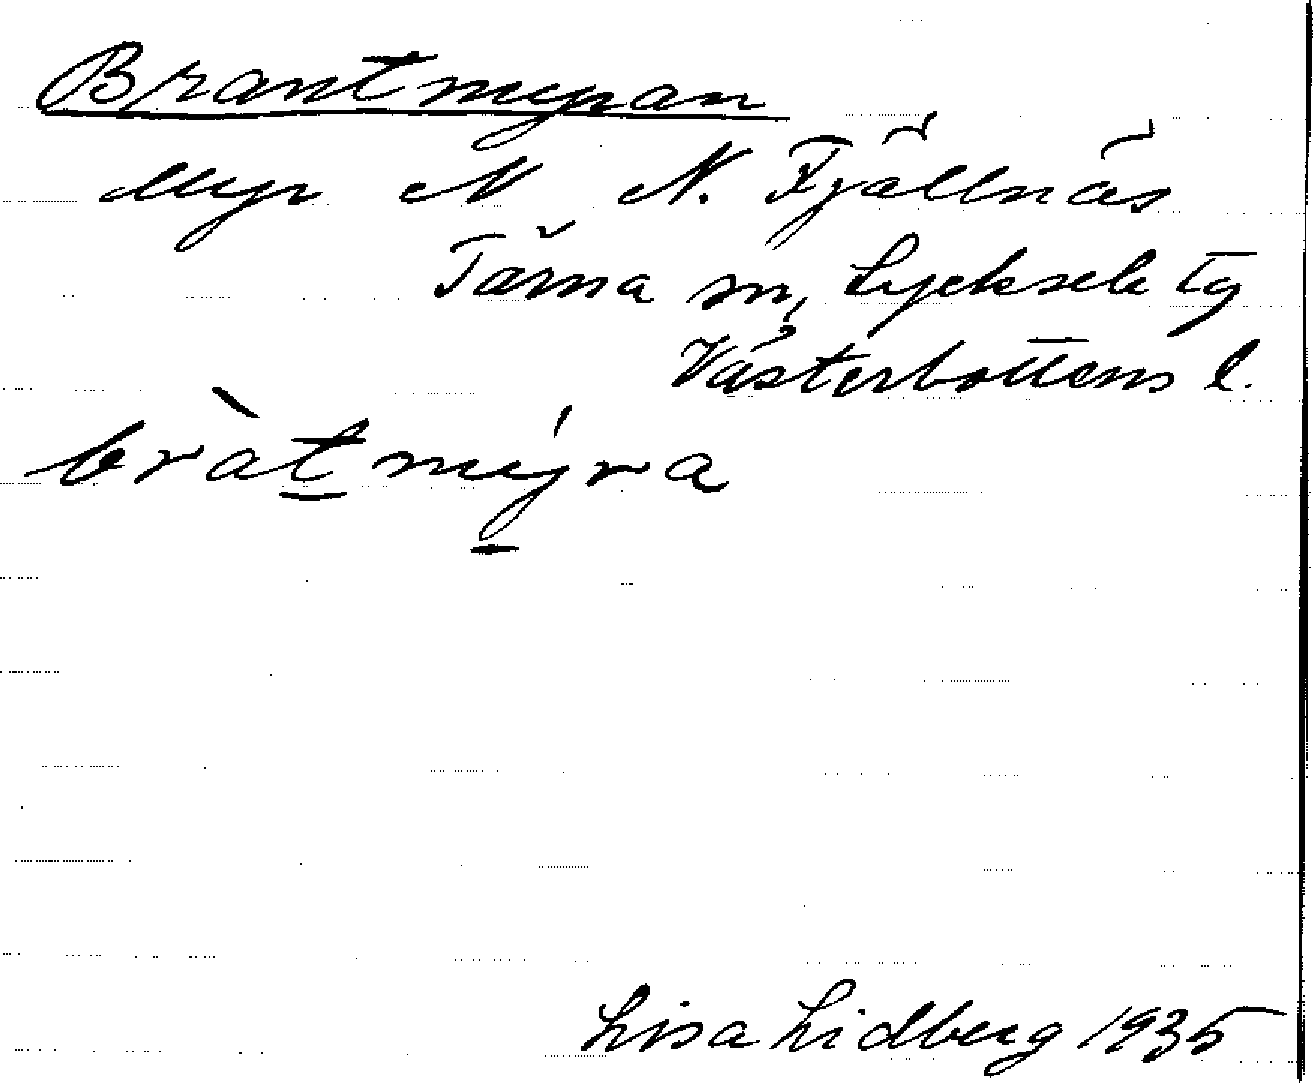 Brantmyran
Myr N N. Fjällnäs
Tärna sn, Lycksele tg
Västerbottens l.
bràt̲mý̲ra
Lisa Lidberg 1935